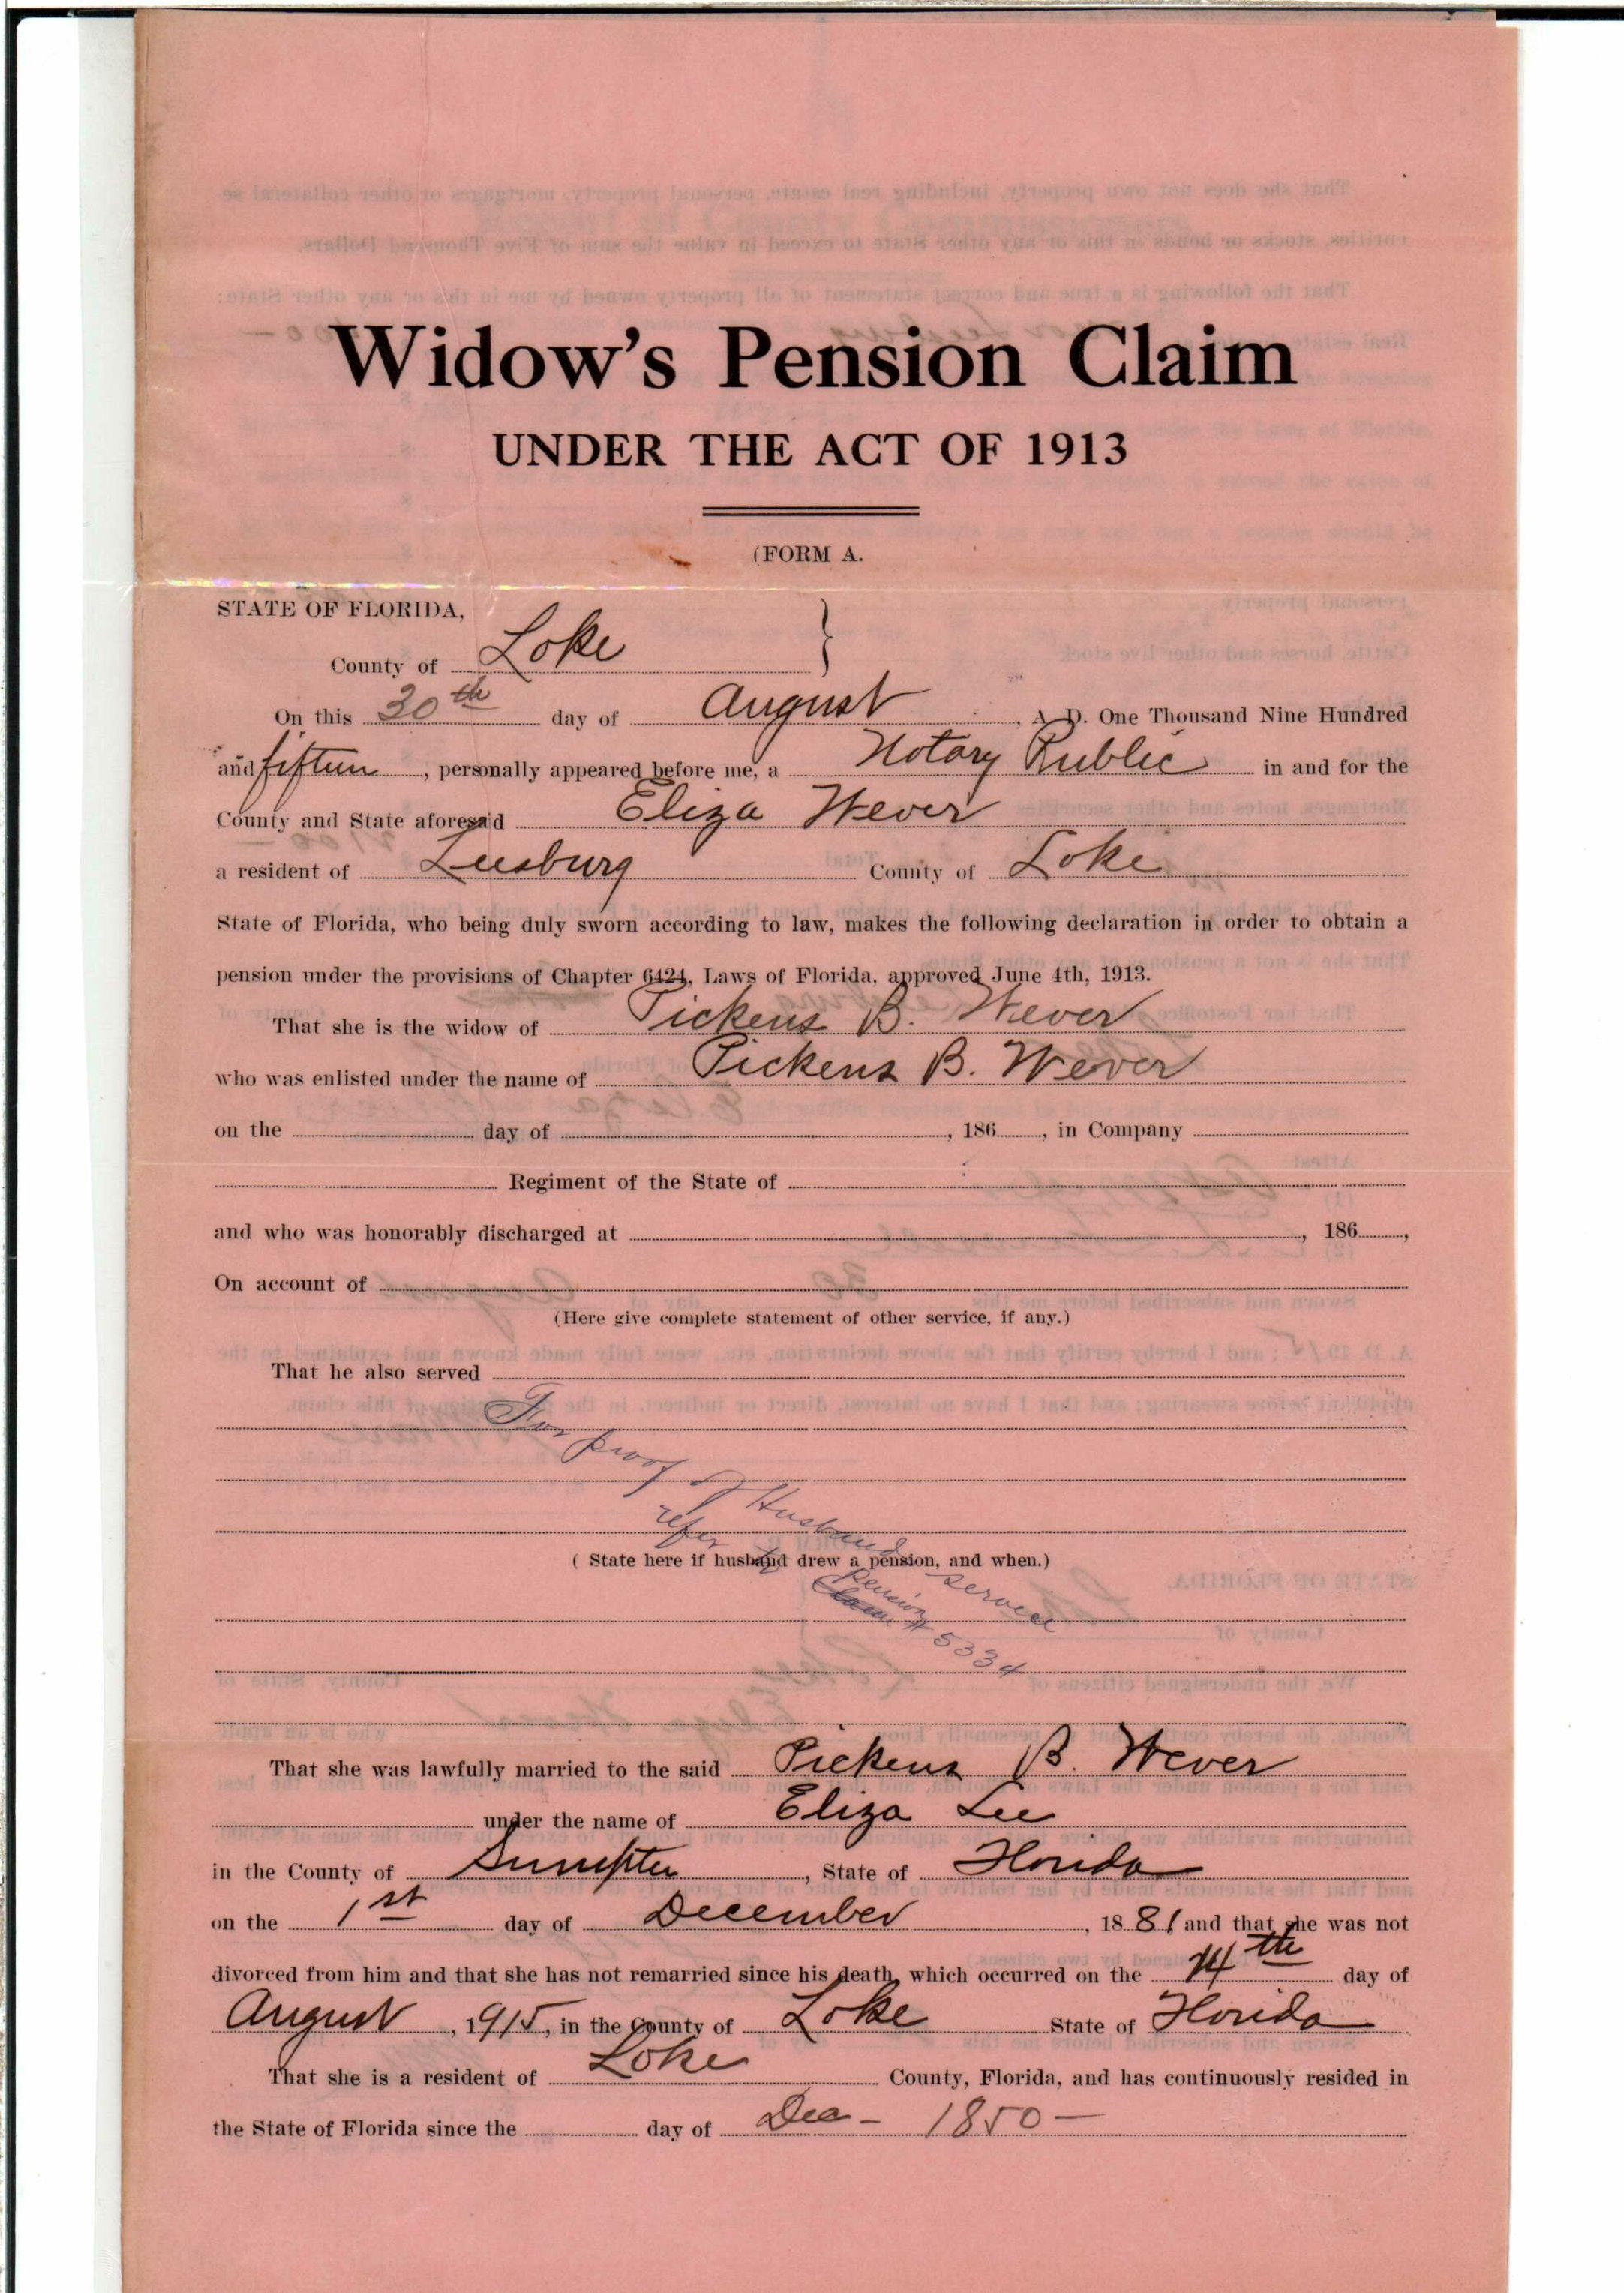 Widow's Pension Claim
UNDER THE ACT OF 1913
(FORM A.
STATE OF FLORIDA,
County of Lake }
On this 30th day of August, A. D. One Thousand Nine Hundred
and fifteen, personally appeared before me, a Notary Public in and for the
County and State aforesaid Eliza Wever
a resident of Leesburg County of Lake
State of Florida, who being duly sworn according to law, makes the following declaration in order to obtain a
pension under the provisions of Chapter 6424, Laws of Florida, approved June 4th, 1913.
That she is the widow of Pickens B. Wever
who was enlisted under the name of Pickens B. Wever
on the day of , 186 , in Company
Regiment of the State of
and who was honorably discharged at , 186 ,
On account of
(Here give complete statement of other service, if any.)
That he also served
For proof of Husband service
refer to
( State here if husband drew a pension, and when.)
Pension
Claim # 5334
That she was lawfully married to the said Pickens B. Wever
under the name of Eliza Lee
in the County of Sumpter, State of Florida
on the 1st day of December, 1881 and that she was not
divorced from him and that she has not remarried since his death, which occurred on the 14th day of
August, 1915, in the County of Lake State of Florida
That she is a resident of Lake County, Florida, and has continuously resided in
the State of Florida since the day of Dec - 1850 -